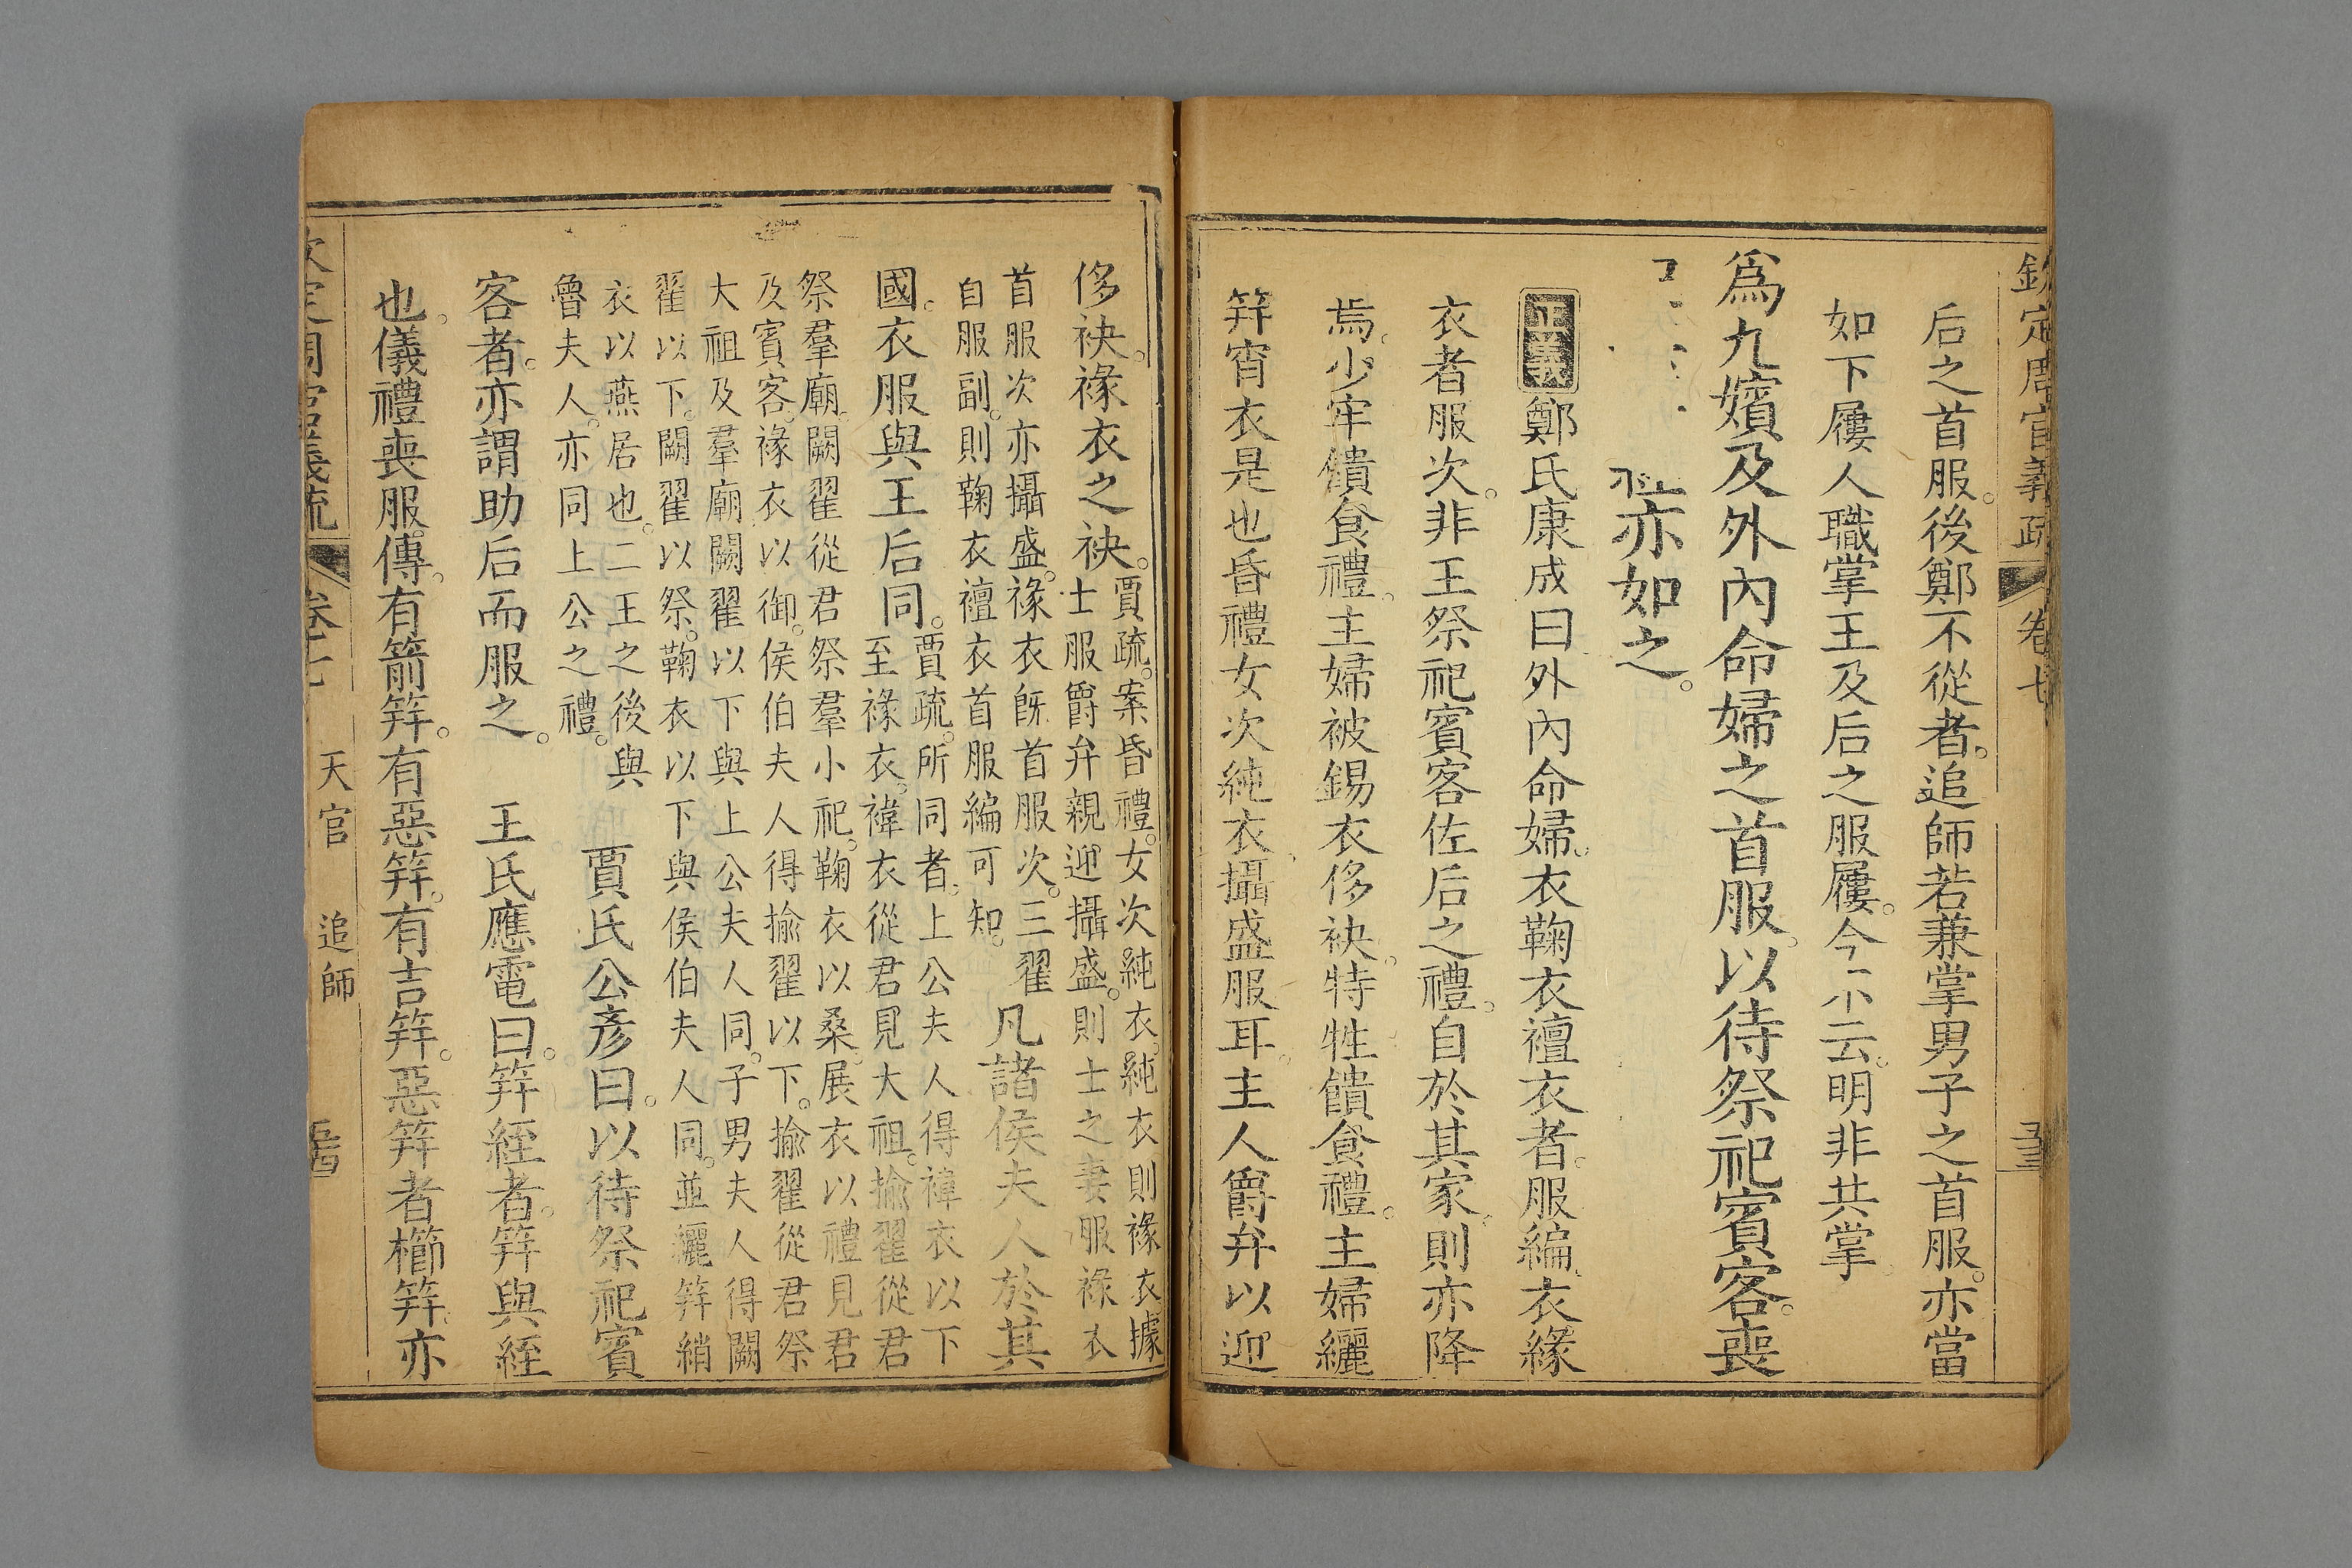 欽定周官義疏 卷七
后之首服。後鄭不從者。追師若兼掌男子之首服。亦當
如下屨人職掌王及后之服屨。今不云。明非共掌
爲九嬪及外內命婦之首服。以待祭祀賓客。喪
亦如之。
正義 鄭氏康成曰外內命婦。衣鞠衣襢衣者。服編。衣緣
衣者服次。非王祭祀賓客佐后之禮。自於其家。則亦降
焉。少牢饋食禮。主婦被錫衣侈袂。特牲饋食禮。主婦纚
笄宵衣是也昏禮女次純衣。攝盛服耳。主人爵弁以迎
侈袂。褖衣之袂。
賈疏。案昏禮。女次純衣。純衣則褖衣據
士服爵弁親迎攝盛。則士之妻服褖衣
首服次亦攝盛。褖衣旣首服次。三翟
自服副。則鞠衣襢衣首服編可知。
凡諸侯夫人於其
國。衣服與王后同。
賈疏。所同者。上公夫人得褘衣以下
至褖衣。褘衣從君見大祖。揄翟從君
祭羣廟。闕翟從君祭羣小祀。鞠衣以桑。展衣以禮見君
及賓客。褖衣以御。侯伯夫人得揄翟以下。揄翟從君祭
大祖及羣廟闕翟以下與上公夫人同。子男夫人得闕
翟以下。闕翟以祭。鞠衣以下與侯伯夫人同。並纚笄綃
衣以燕居也。二王之後與
魯夫人。亦同上公之禮。
賈氏公彥曰。以待祭祀賓
客者。亦謂助后而服之。 王氏應電曰。笄絰者。笄與絰
也。儀禮喪服。傳。有箭笄。有惡笄。有吉笄。惡笄者櫛笄。亦
卷七 天官 追師